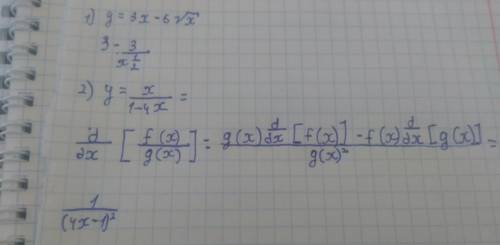 1) y = 3x - 6√x
3 - 3/x^(1/2)
2) y = x/(1-4x) =
d/dx [f(x)/g(x)] = (g(x) d/dx [f(x)] - f(x) d/dx [g(x)])/g(x)² =
1/(4x-1)²